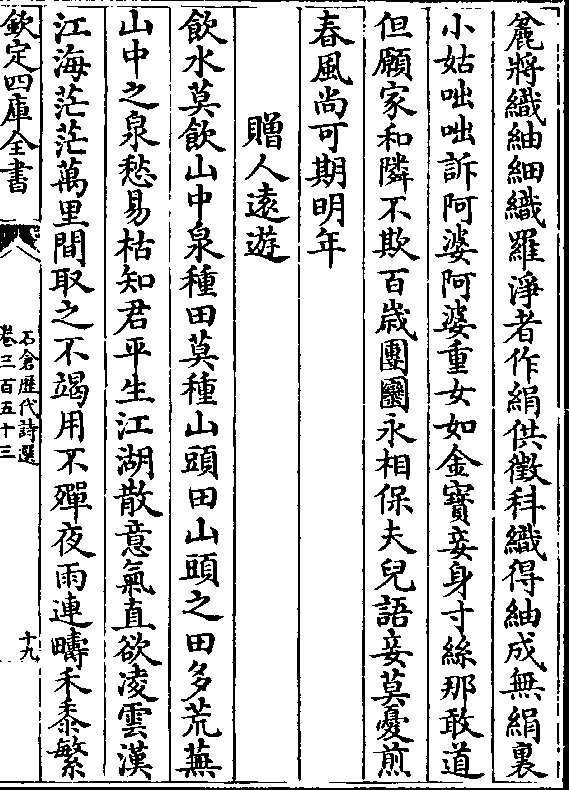 麄將織紬細織羅淨者作絹供徵科織得紬成無絹裏
小姑咄咄訴阿婆阿婆重女如金寶妾身寸絲那敢道
但願家和隣不欺百歳團圞永相保夫兒語妾莫憂煎
春風尚可期明年
贈人遠遊
飲水莫飲山中泉種田莫種山頭田山頭之田多荒蕪
山中之泉愁易枯知君平生江湖散意氣直欲凌雲漢
江海茫茫萬里間取之不竭用不殫夜雨連疇禾黍繁
欽定四庫全書
石倉歷代詩選
卷三百五十三
十九